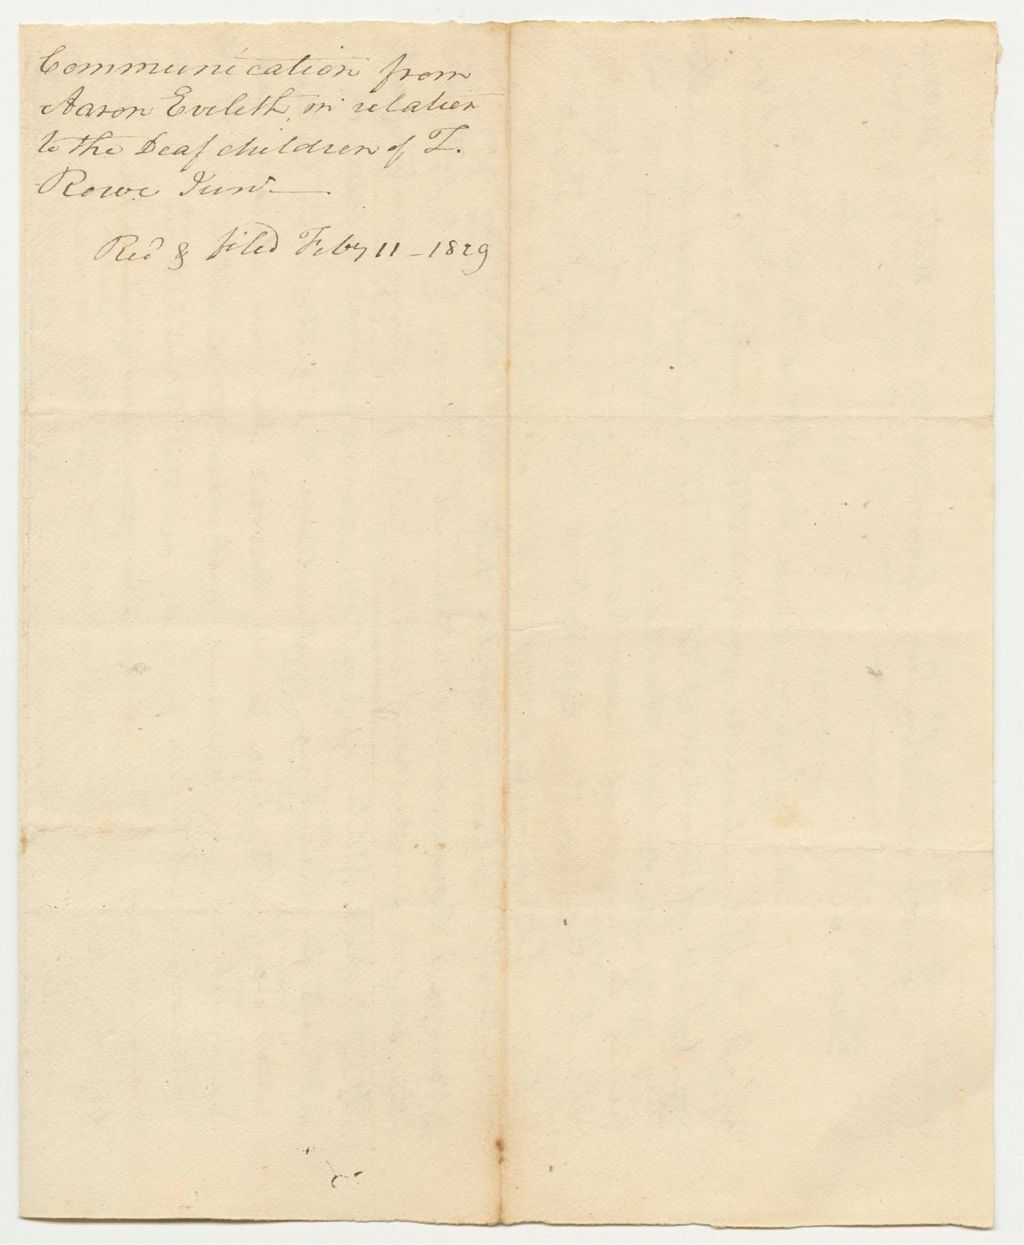 Communication from
Aaron Eveleth, in relation
to the Deaf children of Z.
Rowe Junr.
Recd & filed Feby 11 - 1829